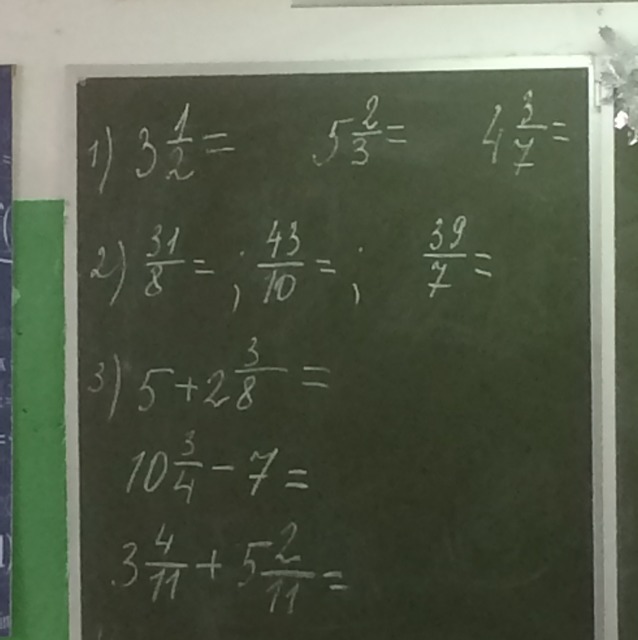 1) 3 1/2 = 5 2/3 = 4 3/7 =
2) 31/8 = ; 43/10 = ; 39/7 =
3) 5 + 2 3/8 =
10 3/4 - 7 =
3 4/11 + 5 2/11 =